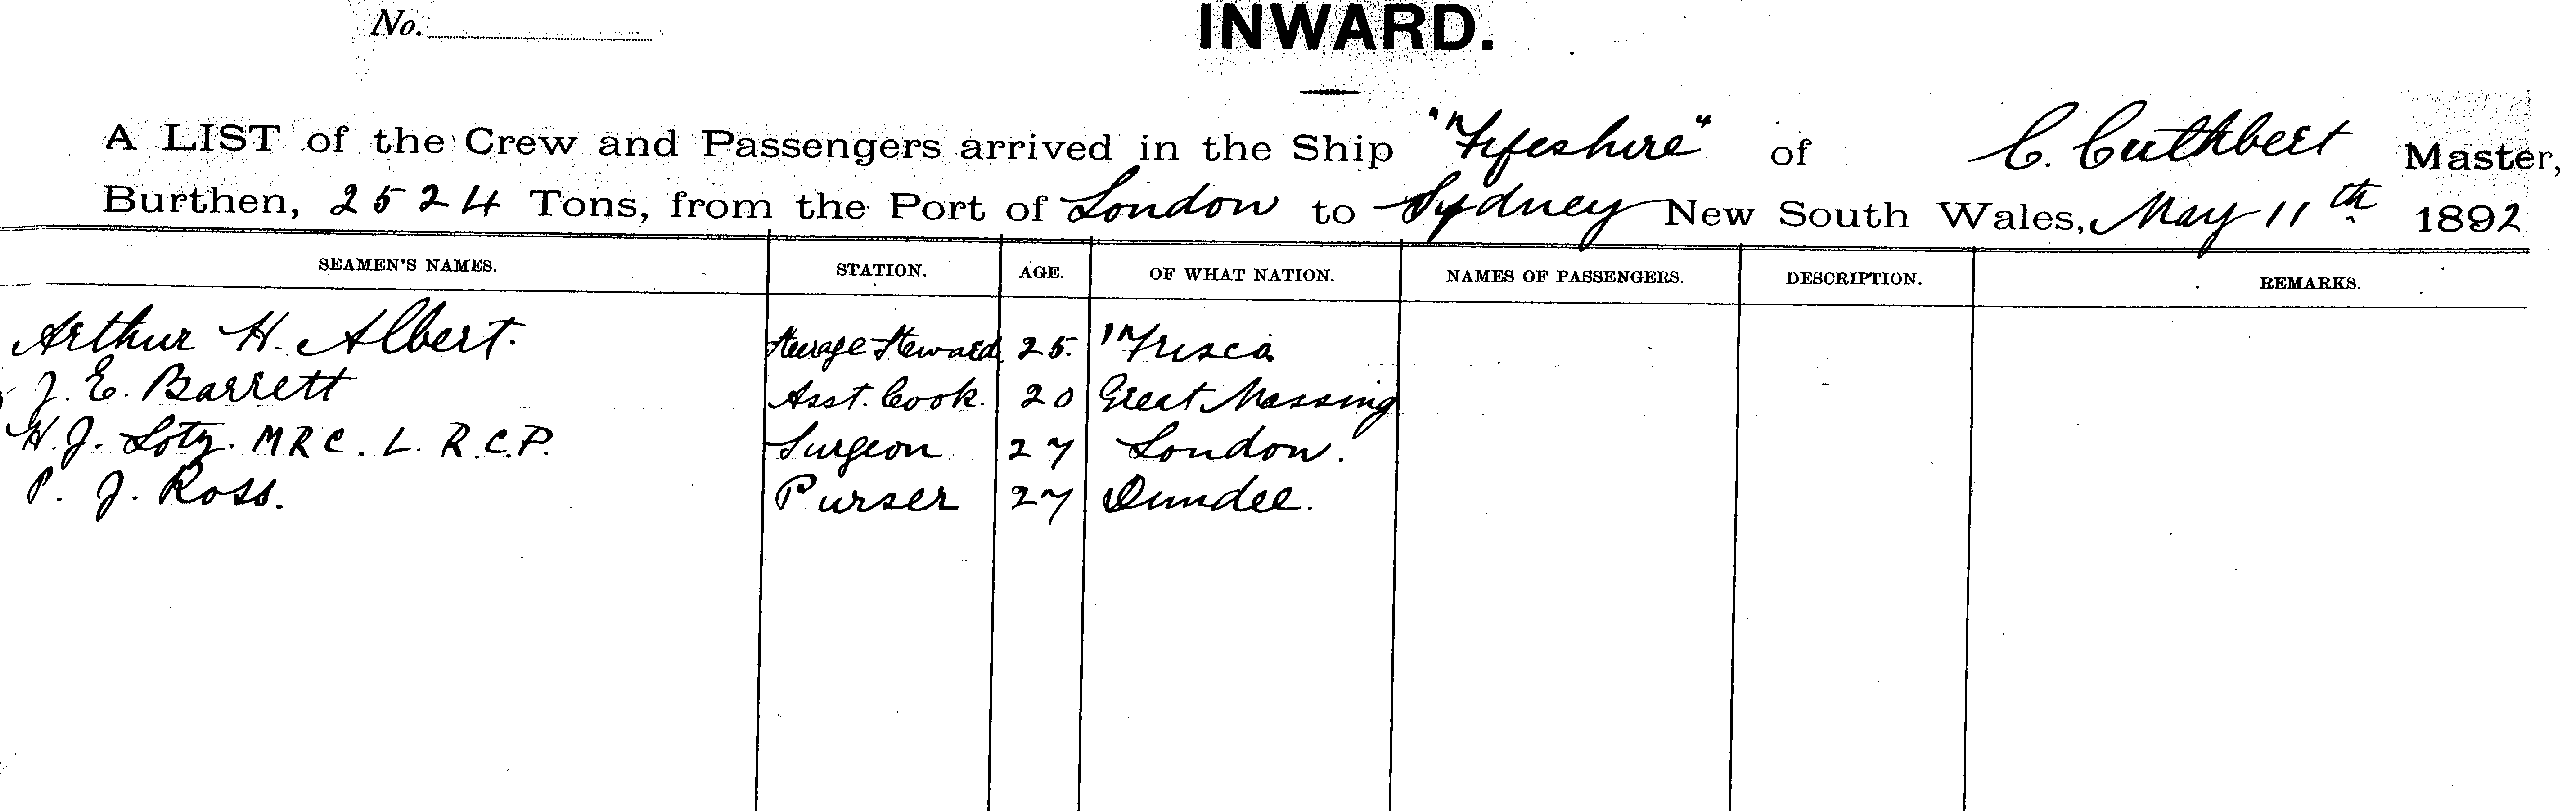 No.
INWARD.
A LIST of the Crew and Passengers arrived in the Ship "Fifeshire" of C. Cuthbert Master,
Burthen, 2524 Tons, from the Port of London to Sydney New South Wales, May 11th 1892
SEAMEN'S NAMES. STATION. AGE. OF WHAT NATION. NAMES OF PASSENGERS. DESCRIPTION. REMARKS.
Arthur H. Albert. Steerage Steward 25. 'Frisco
J. E. Barrett Asst. Cook. 20 Great Massing
H. J. Loty. M R C. L. R. C. P. Surgeon 27 London.
P. J. Ross. Purser 27 Dundee.